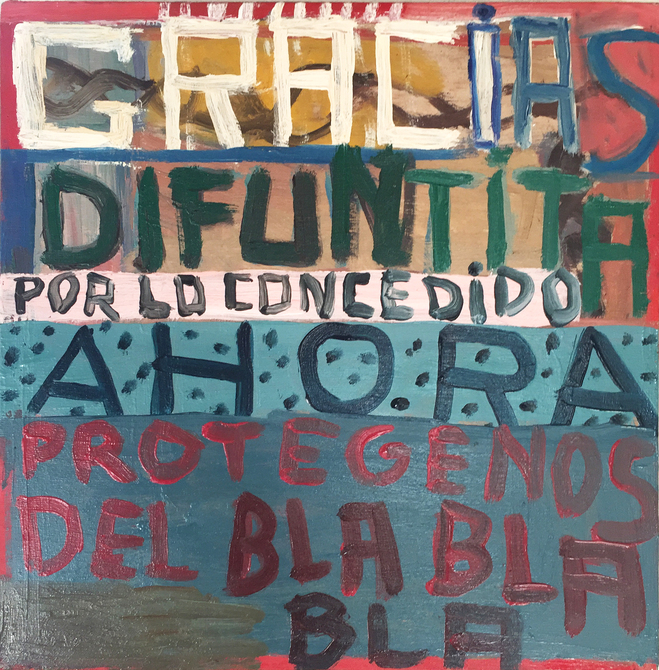 GRACiAS
DIFUNTiTA
POR LO CONCEDiDO
AHORA
PROTEGENOS
DEL BLA BLA
BLA